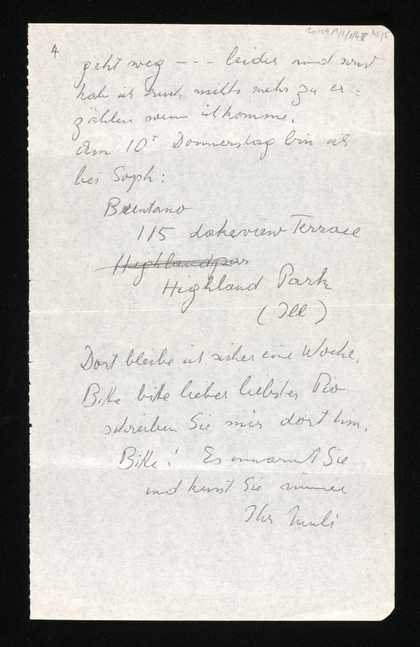 4
geht weg --- leider und sonst
hab ich auch nichts mehr zu er=
zählen wenn ich komme.
Am 10t Donnerstag bin ich
bei Soph:
Brentano
115 Lakeview Terrace
Highlandpar
Highland Park
(Ill)
Dort bleibe ich sicher eine Woche.
Bitte bitte lieber liebster
schreiben Sie mir dort hin.
Bitte! Es umarmt Sie
und küsst Sie immer
Ihr